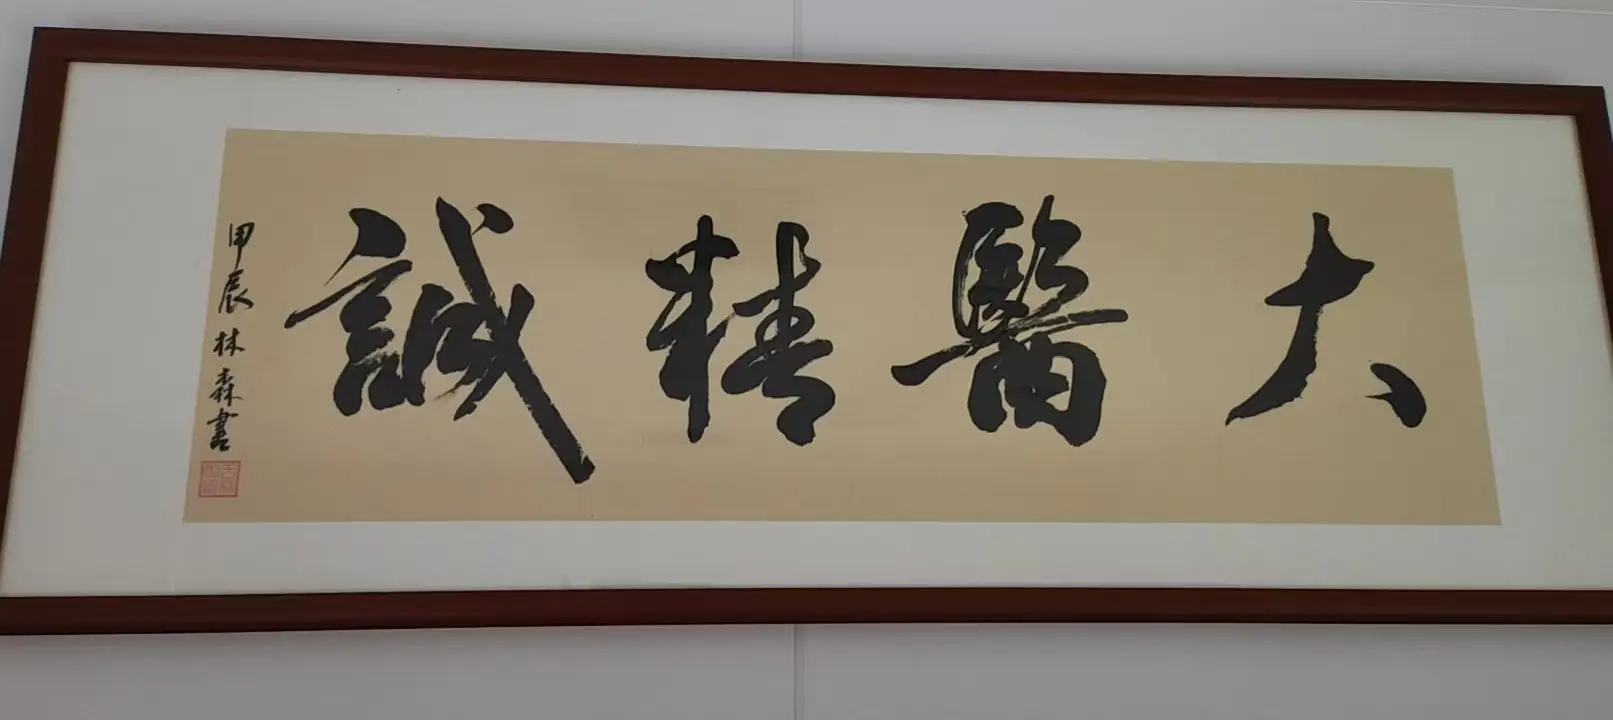 大醫精誠
甲辰林森書